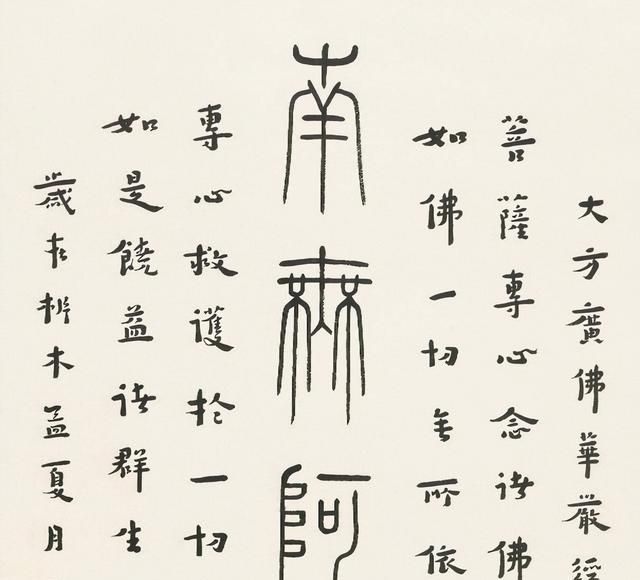 大方廣佛華嚴經
菩薩專心念諸佛
如佛一切無所依
南無阿
專心救護於一切
如是饒益諸群生
歲在析木孟夏月